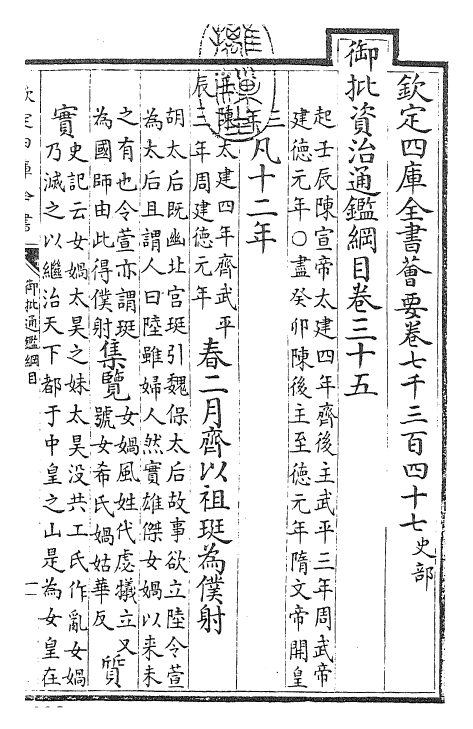 欽定四庫全書薈要卷七千三百四十七 史部
御批資治通鑑綱目卷三十五
起壬辰陳宣帝太建四年齊後主武平三年周武帝
建德元年○盡癸卯陳後主至德元年隋文帝開皇
三年
凡十二年
壬陳太建四年齊武平
辰三年周建德元年
春二月齊以祖珽為僕射
胡太后既幽北宫珽引魏保太后故事欲立陸令萱
為太后且謂人曰陸雖婦人然實雄傑女媧以來未
之有也令萱亦謂珽
為國師由此得僕射
集覽
女媧風姓代虙犧立又
號女希氏媧姑華反
質
實
史記云女媧太昊之妹太昊没共工氏作亂女媧
乃滅之以繼治天下都于中皇之山是為女皇在
欽定四庫全書
御批通鑑綱目
一